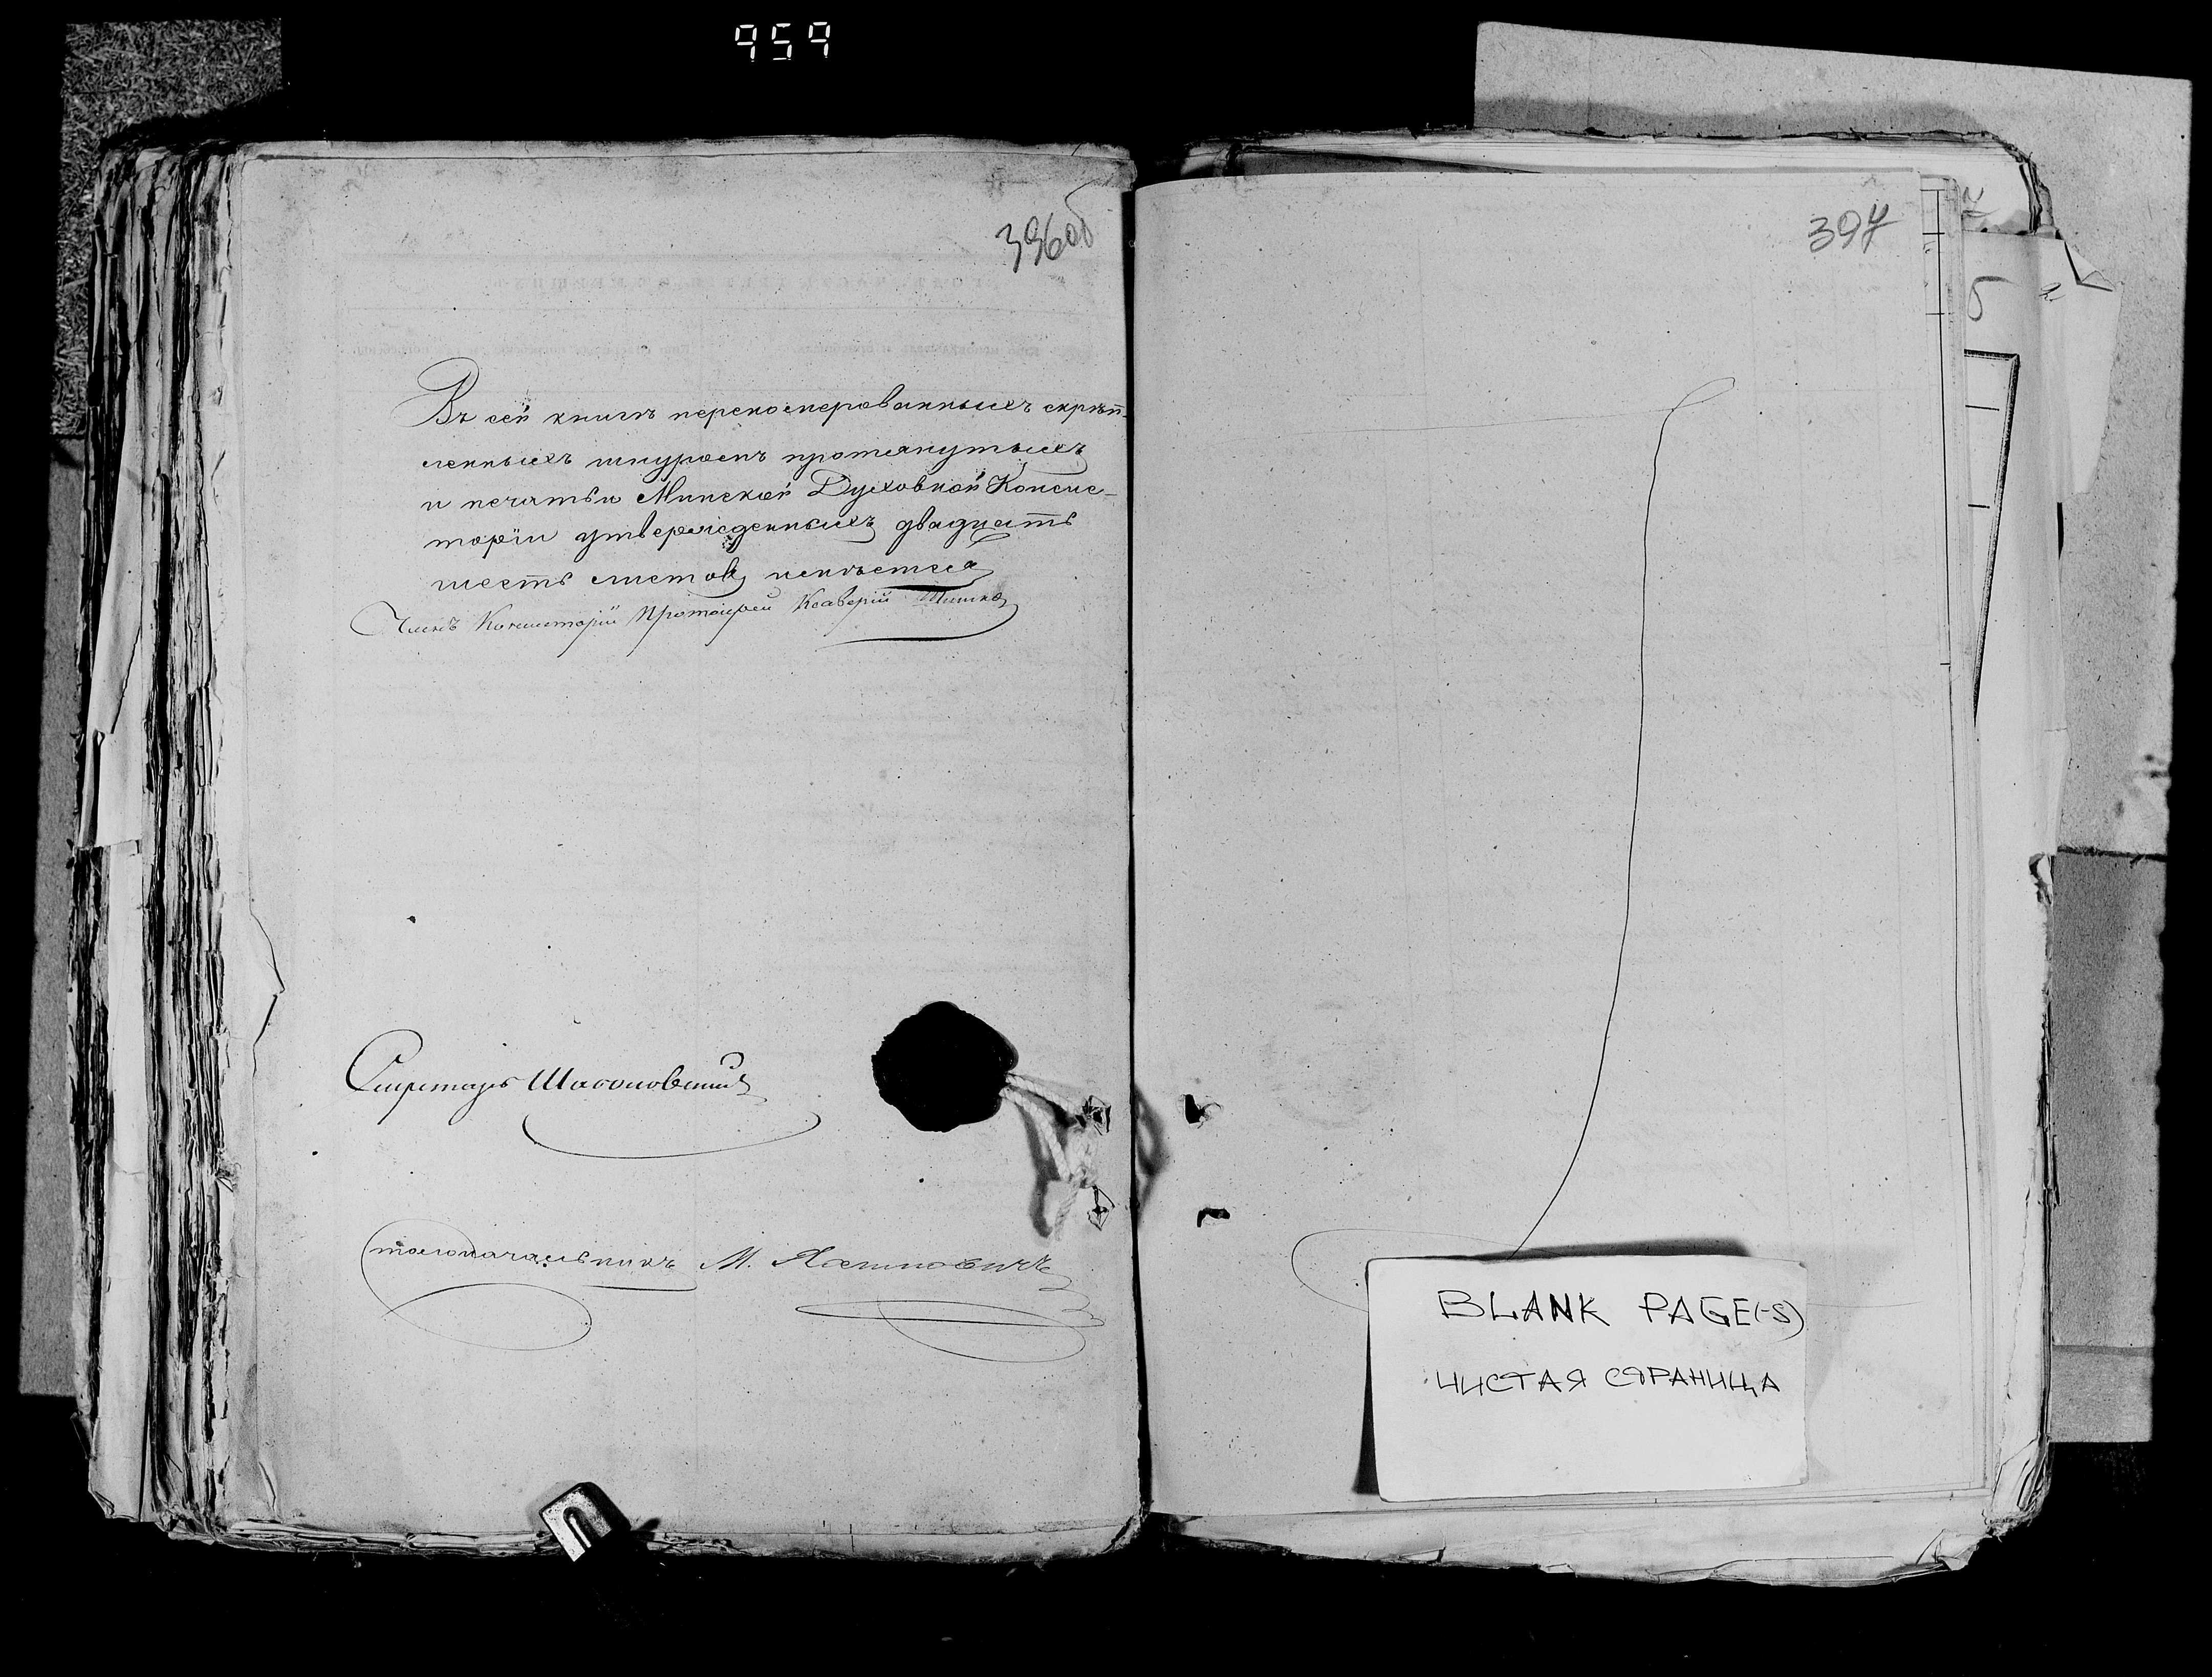 959
396об
Въ сей книгѣ перенумерованныхъ скрѣп-
ленныхъ шнуромъ протянутыхъ
и печатью Минской Духовной Консис-
торіи утвержденныхъ двадцать
шесть листовъ имѣется
Членъ Консисторіи Протоіерей Ксаверій
Секретарь
Столоначальникъ М.
397
BLANK PAGE(-S)
ЧИСТАЯ СТРАНИЦА